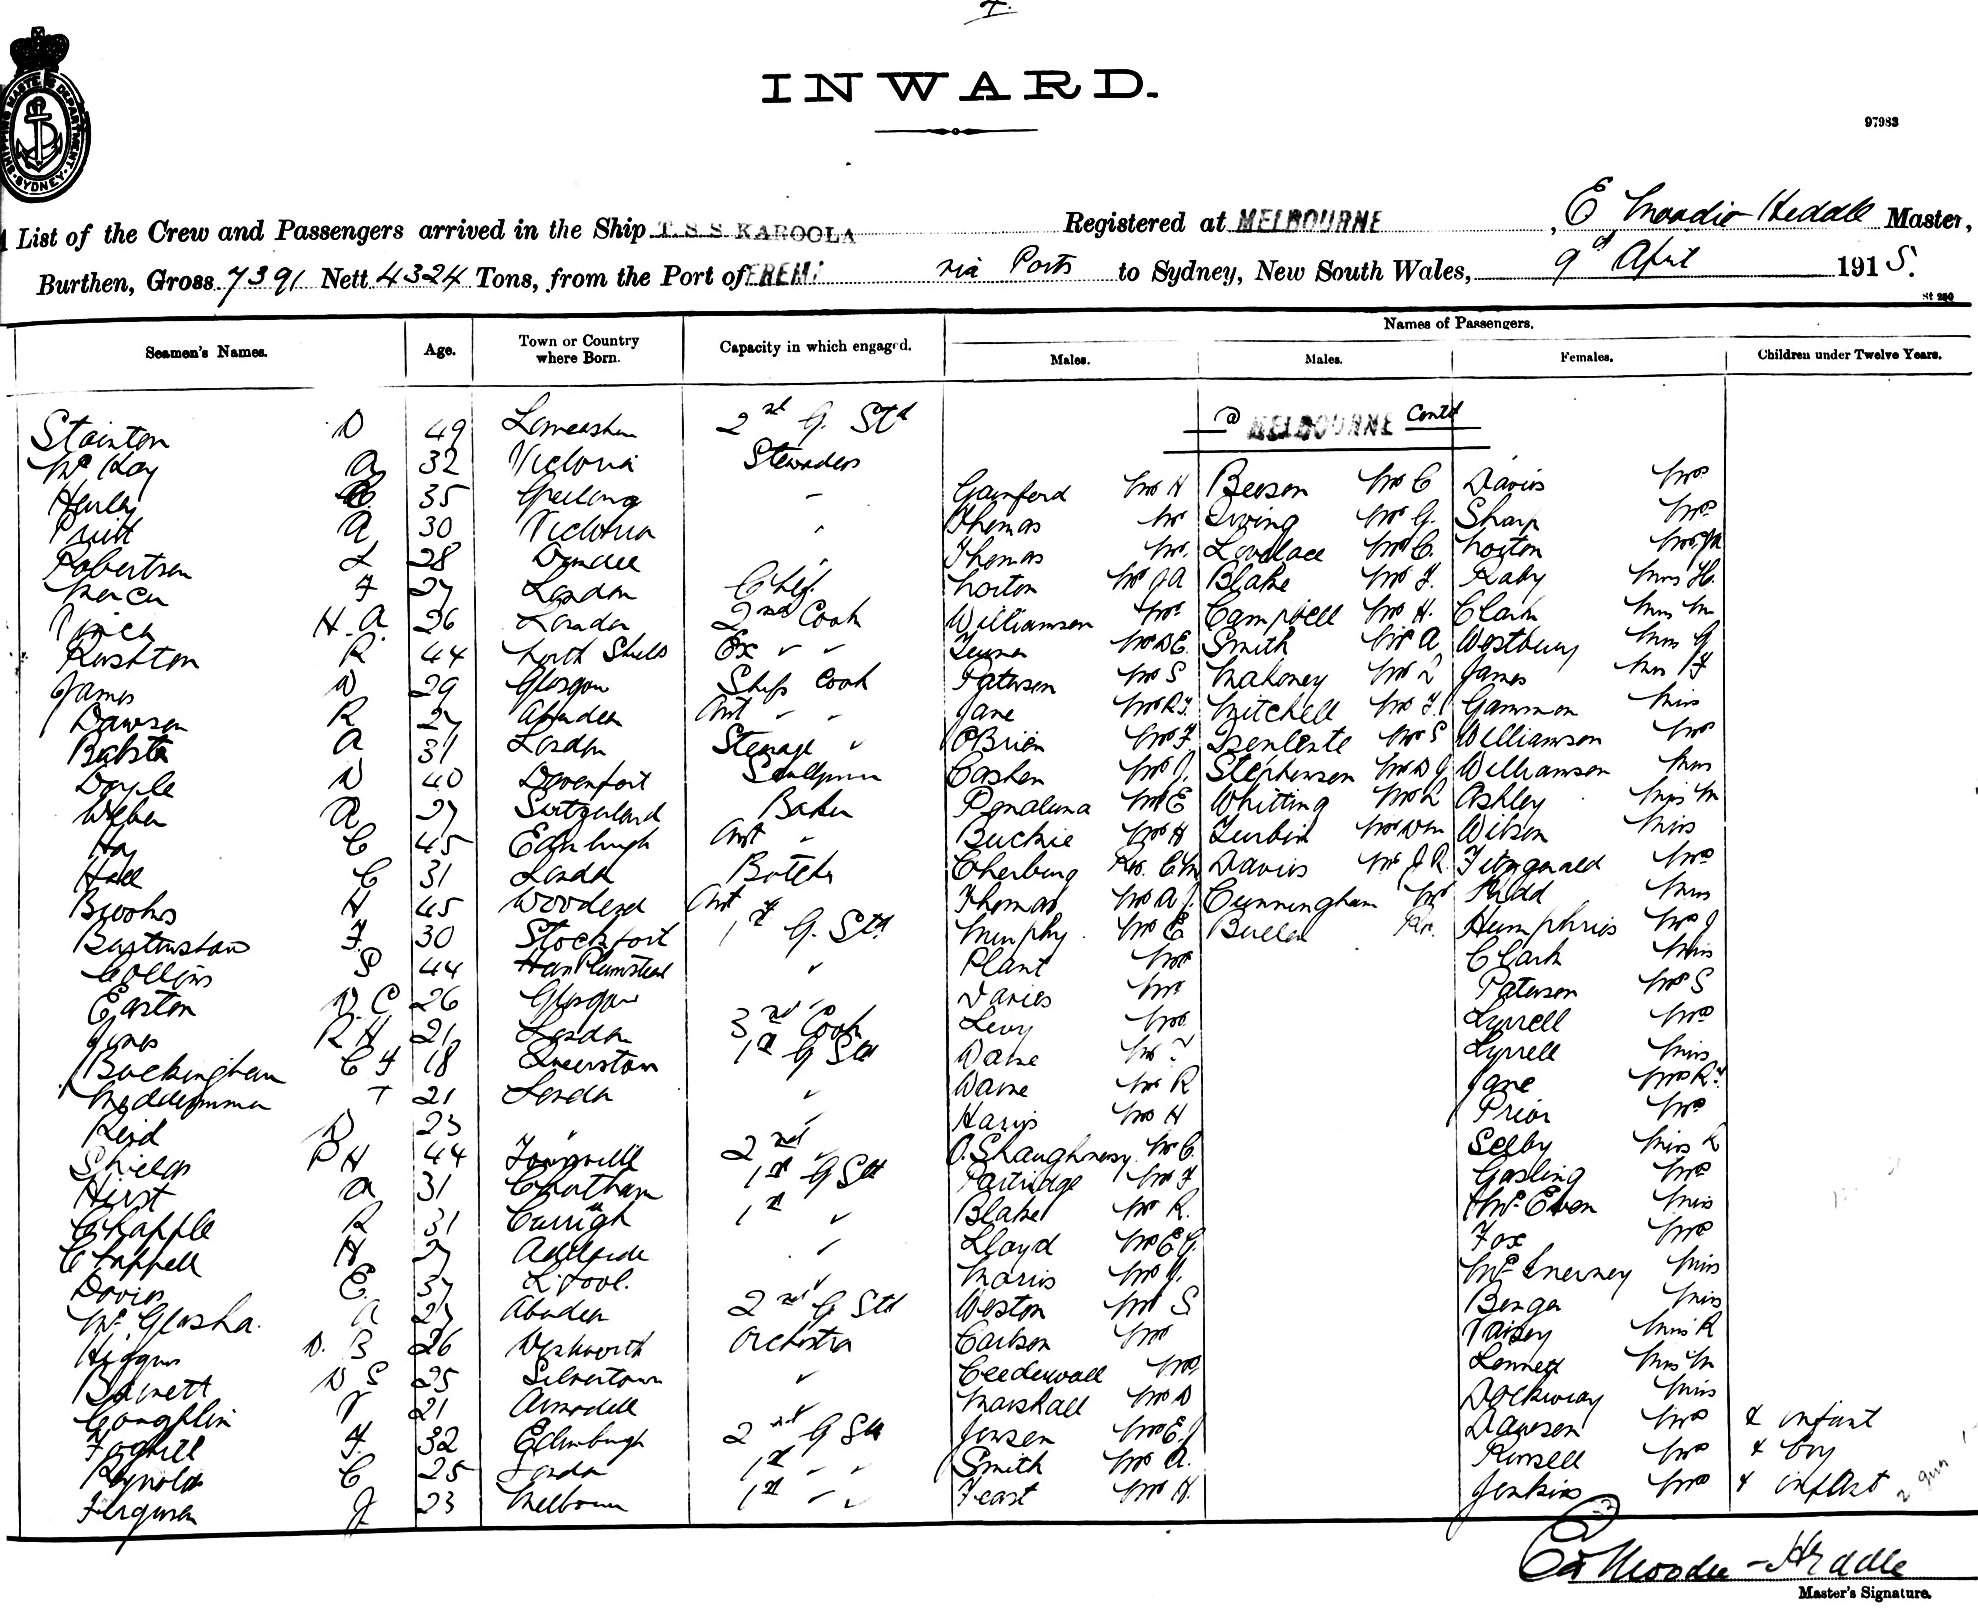 INWARD.
97983
SHIPPING MASTER'S DEPARTMENT. SYDNEY.
List of the Crew and Passengers arrived in the Ship T.S.S KAROOLA Registered at MELBOURNE, E Moodie-Heddle Master,
Burthen, Gross 7391 Nett 4324 Tons, from the Port of FREM via Ports to Sydney, New South Wales, 9th April 1915.
St 250
Names of Passengers.
Seamen's Names. Age. Town or Country where Born. Capacity in which engaged. Males. Males. Females. Children under Twelve Years.
Stainton D 49 2nd G. Std @ MELBOURNE Contd
McKay A 32 Victoria
Henley 35 Geelong Gainford Mr H Beeson Mr C Davis Mrs
A 30 Victoria Thomas Mr Irving Mr G. Sharp Mrs
Robertson L 28 Dundee Thomas Mr. Lovelace Mr C. Norton Mrs JA
Mercer F 27 London Chef Norton Mr JA Blake Mr F. Raby Miss H.
H.A. 26 London 2nd Cook Williamson Mr Campbell Mr H. Clark Miss M
Rushton R 44 North Shields Ex " " Mr D E. Smith Mr A Westbury Miss G
James D 29 Glasgow Ships Cook Paterson Mr S Mahoney Mr L James Miss F
Dawson R 27 Aberdeen Asst " " Jane Mr R F. Mitchell Mr F. Gammon Miss
A 31 London " O'Brien Mr F Mr S Williamson Mrs
Doyle D 40 Davenport Cashen Mr J. Stephenson Mr D J Williamson Miss
Weber A 27 Switzerland Baker Penaluna Mr E Whitting Mr L Ashley Miss M
Hay C 45 Edinburgh Asst " Buckie Mr H Turbin Mr Wm Wilson Miss
Hall C 31 London Butcher Cherbury Rev. C M Davis Mr J R. Fitzgerald Mrs
Brooks H 45 Woodend Asst " Thomas Mr A J. Cunningham Mr Kidd Miss
F. 30 Stockport 1st G. Std Murphy Mr E Bullen Mr. Humphries Mrs J
Collins S 44 Plumstead " Plant Mr Clark Miss
Easton D.C 26 Glasgow " Davies Mr Paterson Mrs S
Jones R H 21 London 3rd Cook Levy Mr Tyrrell Mrs
Buckingham C F 18 Queenstown 1st G Std Dawe Mr Tyrrell Miss
T 21 London " Dawe Mr R Jane Mrs R F
Reid D 23 " " Harris Mr H Prior Mrs
Shields P H 44 2nd " O'Shaughnessy Mr C. Selby Miss L
Hirst A 31 Chatham 1st G Std Partridge Mr F Gosling Mrs
Chapple R 31 1st " Blake Mr R. McEwen Miss
Chappell H 27 Adelaide " Lloyd Mr E G. Fox Mrs
Davies E. 37 L'pool. " Morris Mr J. McInerney Miss
McGlasha. A 27 Aberdeen 2nd G Std Weston Mr S Benger Miss
Higgins D. B 26 Orchestra Carlson Mr Miss R
Barnett D S 25 Silvertown " Cederwall Mr Lennett Miss M
Coughlin V 21 Armadale " Marshall Mr D Dockwray Miss
Foghill F. 32 Edinburgh 2nd G Std Jensen Mr E J Dawson Mrs & infant
Reynolds C 25 London 1st " " Smith Mr A. Russell Mrs & boy
Ferguson J 23 Melbourne 1st " " Feast Mr H. Jenkins Mrs & infant
Ed Moodie-Heddle
Master's Signature.